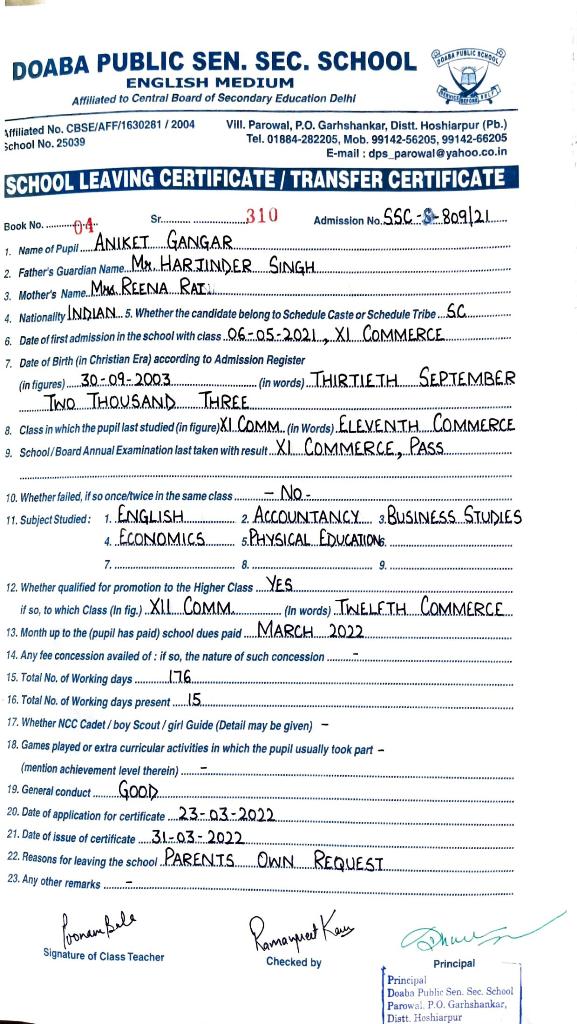 DOABA PUBLIC SEN. SEC. SCHOOL
ENGLISH MEDIUM
Affiliated to Central Board of Secondary Education Delhi
DOABA PUBLIC SCHOOL
SERVICE BEFORE SELF
Affiliated No. CBSE/AFF/1630281 / 2004
School No. 25039
Vill. Parowal, P.O. Garhshankar, Distt. Hoshiarpur (Pb.)
Tel. 01884-282205, Mob. 99142-56205, 99142-66205
E-mail : dps_parowal@yahoo.co.in
SCHOOL LEAVING CERTIFICATE / TRANSFER CERTIFICATE
Book No. 04 Sr. 310 Admission No. SSC-S-809/21
1. Name of Pupil ANIKET GANGAR
2. Father's Guardian Name Mr. HARJINDER SINGH
3. Mother's Name Mrs REENA RAI
4. Nationality INDIAN 5. Whether the candidate belong to Schedule Caste or Schedule Tribe SC
6. Date of first admission in the school with class 06-05-2021, XI COMMERCE
7. Date of Birth (in Christian Era) according to Admission Register
(in figures) 30-09-2003 (in words) THIRTIETH SEPTEMBER
TWO THOUSAND THREE
8. Class in which the pupil last studied (in figure) XI COMM. (in Words) ELEVENTH COMMERCE
9. School/Board Annual Examination last taken with result XI COMMERCE, PASS
10. Whether failed, if so once/twice in the same class - No -
11. Subject Studied : 1. ENGLISH 2. ACCOUNTANCY 3. BUSINESS STUDIES
4. ECONOMICS 5. PHYSICAL EDUCATION 6.
7. 8. 9.
12. Whether qualified for promotion to the Higher Class YES
if so, to which Class (In fig.) XII COMM. (In words) TWELFTH COMMERCE
13. Month up to the (pupil has paid) school dues paid MARCH 2022
14. Any fee concession availed of : if so, the nature of such concession -
15. Total No. of Working days 176
16. Total No. of Working days present 15
17. Whether NCC Cadet / boy Scout / girl Guide (Detail may be given) -
18. Games played or extra curricular activities in which the pupil usually took part -
(mention achievement level therein) -
19. General conduct GOOD
20. Date of application for certificate 23-03-2022
21. Date of issue of certificate 31-03-2022
22. Reasons for leaving the school PARENTS OWN REQUEST
23. Any other remarks -
Poonam Bala
Ramanpreet Kaur
Signature of Class Teacher Checked by Principal
Principal
Doaba Public Sen. Sec. School
Parowal, P.O. Garhshankar,
Distt. Hoshiarpur